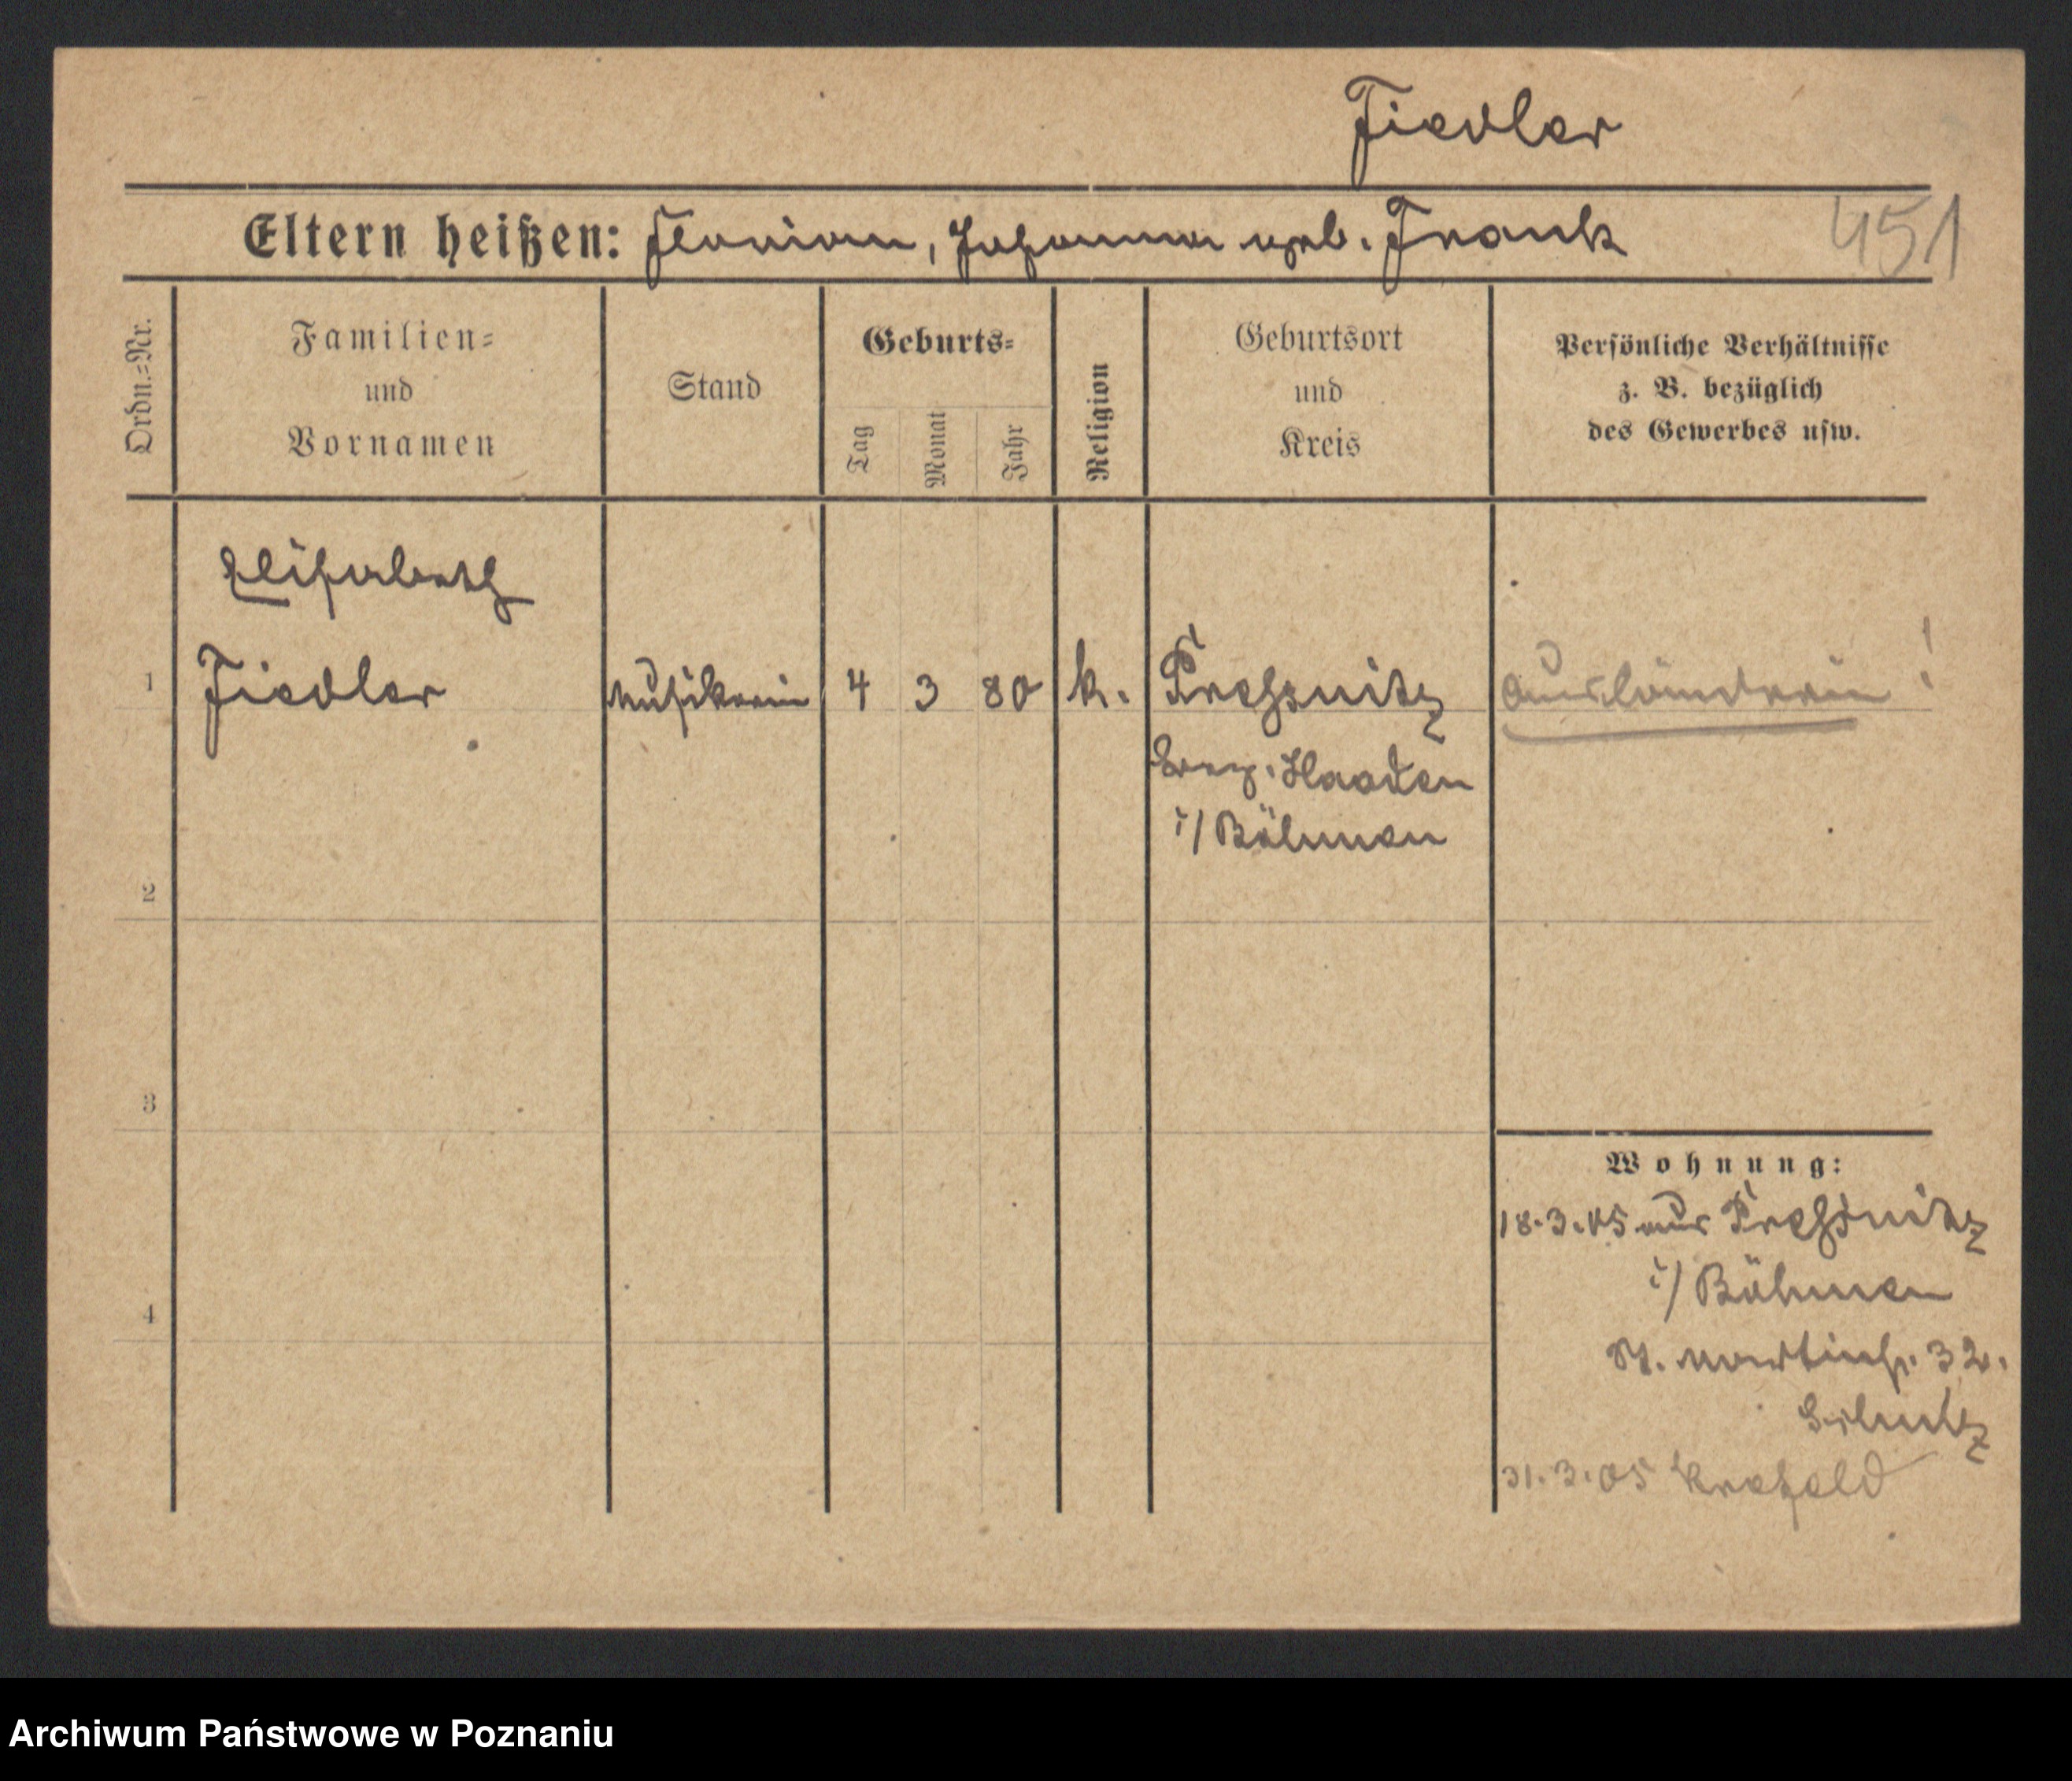 Fiedler
Eltern heißen: Florian, Johanna geb. Frank
451
Ordn.=Nr.
Familien=
und
Vornamen
Stand
Geburts=
Tag
Monat
Jahr
Religion
Geburtsort
und
Kreis
Persönliche Verhältnisse
z. B. bezüglich
des Gewerbes usw.
Elisabeth
1 Fiedler Musikerin 4 3 80 k. Pressnitz Ausländerin!
Bez. Kaaden
i/Böhmen
2
3
4
Wohnung:
18.3.05 aus Pressnitz
i/Böhmen
St. Martinstr. 32.
31.3.05 Krefeld
Archiwum Państwowe w Poznaniu